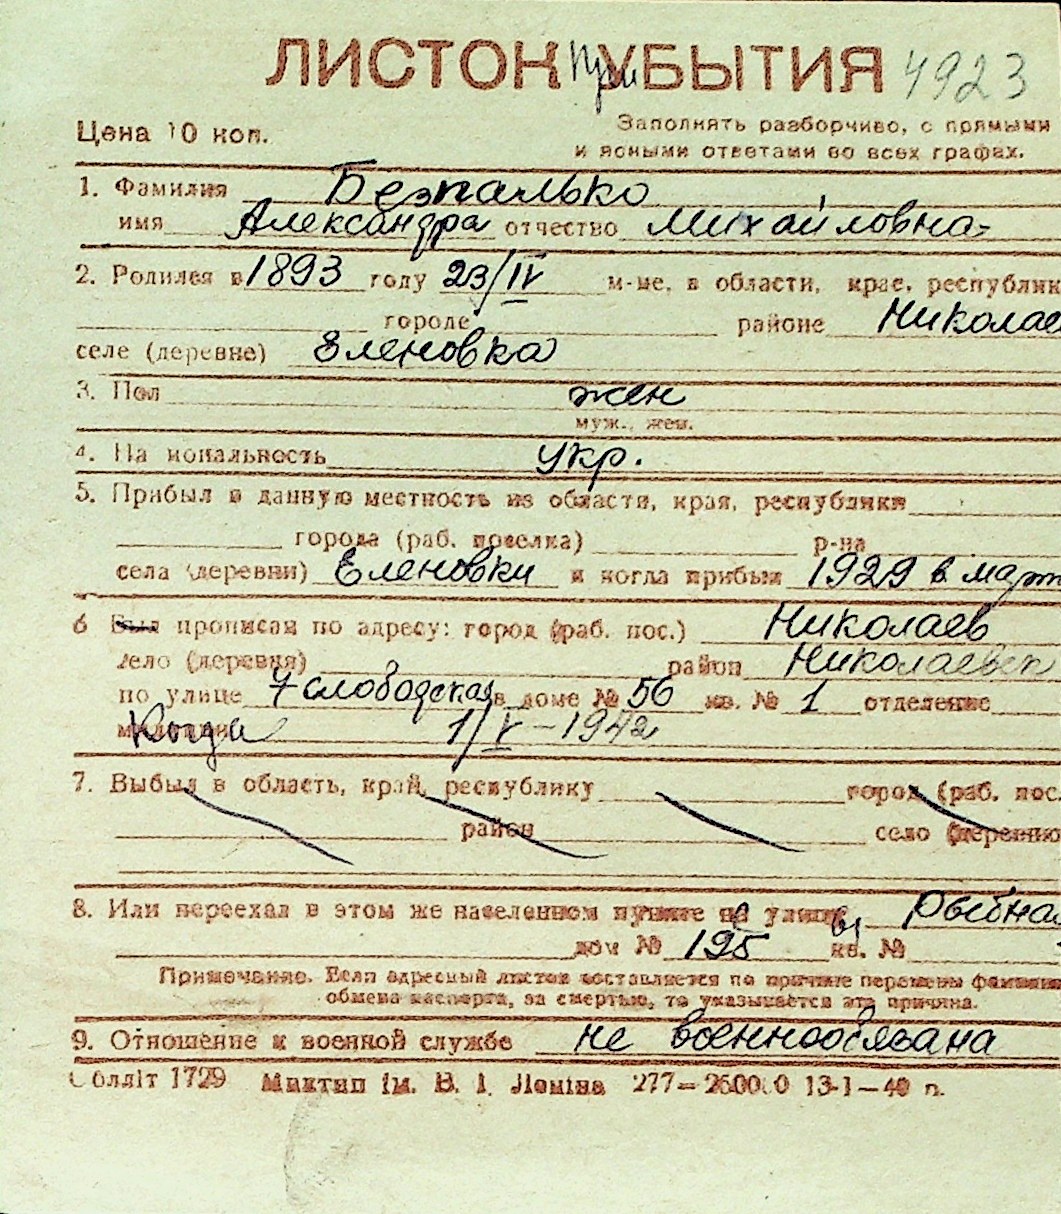 ЛИСТОК При УБЫТИЯ 4923
Цена 10 коп.
Заполнять разборчиво, с прямыми
и ясными ответами во всех графах.
1. Фамилия Безпалько
имя Александра отчество Михайловна
2. Родился в 1893 году 23/IV м-це, в области, крае, республик
городе районе Николаев
селе (деревне) Еленовка
3. Пол жен
муж., жен.
4. На иональность укр.
5. Прибыл в данную местность из области, края, республики
города (раб. поселка) р-на
села (деревни) Еленовки и когда прибыл 1929 в март
6 Был прописан по адресу: город (раб. пос.) Николаев
село (деревня) район Николаевск
по улице 7 слободская в доме № 56 кв. № 1 отделение
милиции Когда 1/V - 1942
7. Выбыл в область, край, республику город (раб. пос.
район село (деревню
8. Или переехал в этом же населенном пункте на улицу Рыбна
дом № 195 кв. №
Примечание. Если адресный листок составляется по причине перемены фамилии
обмена паспорта, за смертью, то указывается эта причина.
9. Отношение к военной службе не военнообязана
Облліт 1729 Миктип ім. В. І. Леніна 277— 13-1—40 р.